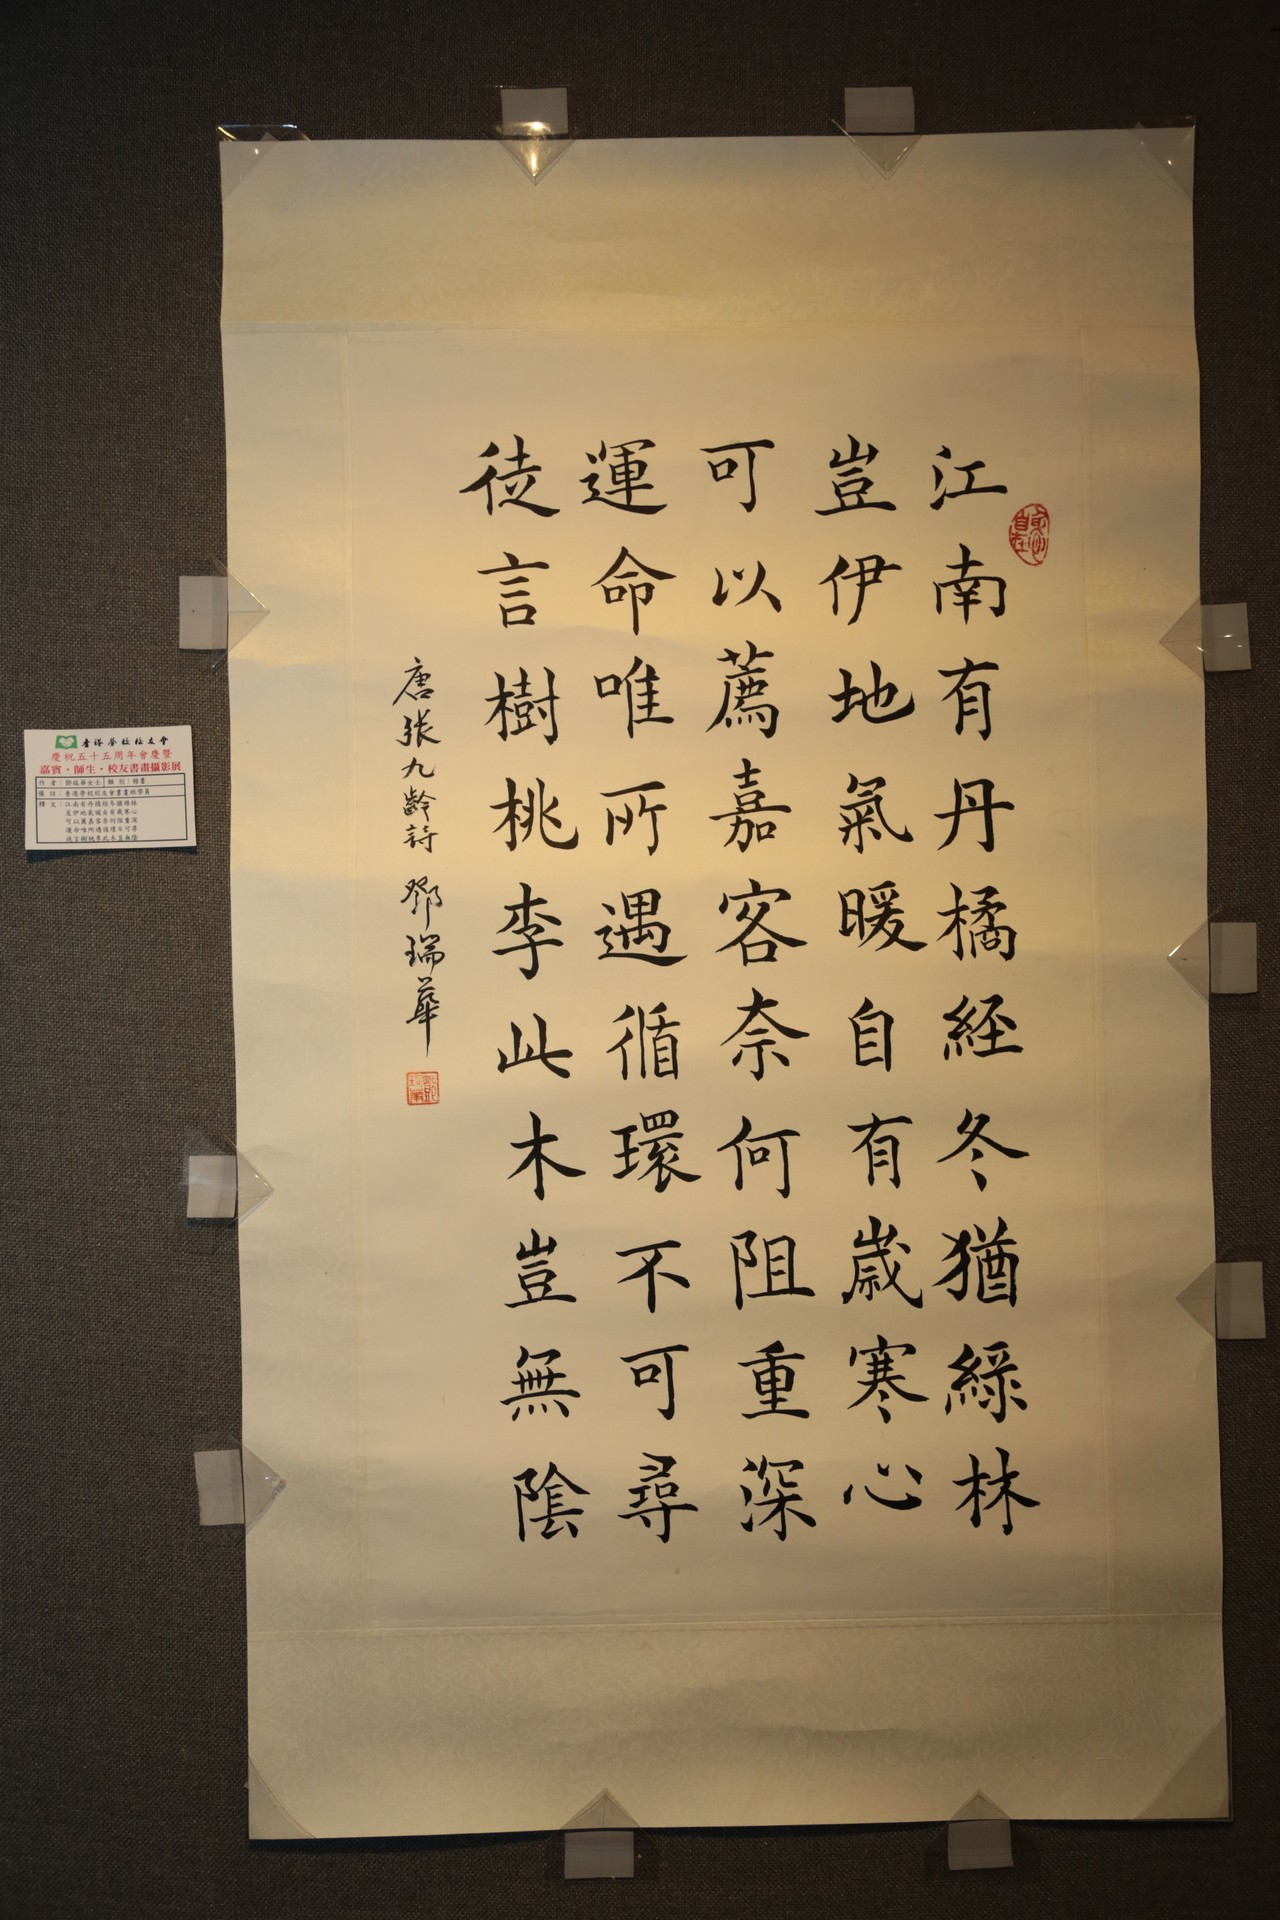 江南有丹橘経冬猶綠林
豈伊地氣暖自有歲寒心
可以薦嘉客奈何阻重深
運命唯所遇循環不可尋
徒言樹桃李此木豈無陰
唐張九齡詩 鄧瑞華
香港葛量洪校友會
慶祝五十五周年會慶暨
嘉賓・師生・校友書畫攝影展
作者：鄧瑞華女士 類別：楷書
備註：香港學校校友會書畫班學員
釋文：江南有丹橘經冬猶綠林
豈伊地氣暖自有歲寒心
可以薦嘉客奈何阻重深
運命唯所遇循環不可尋
徒言樹桃李此木豈無陰